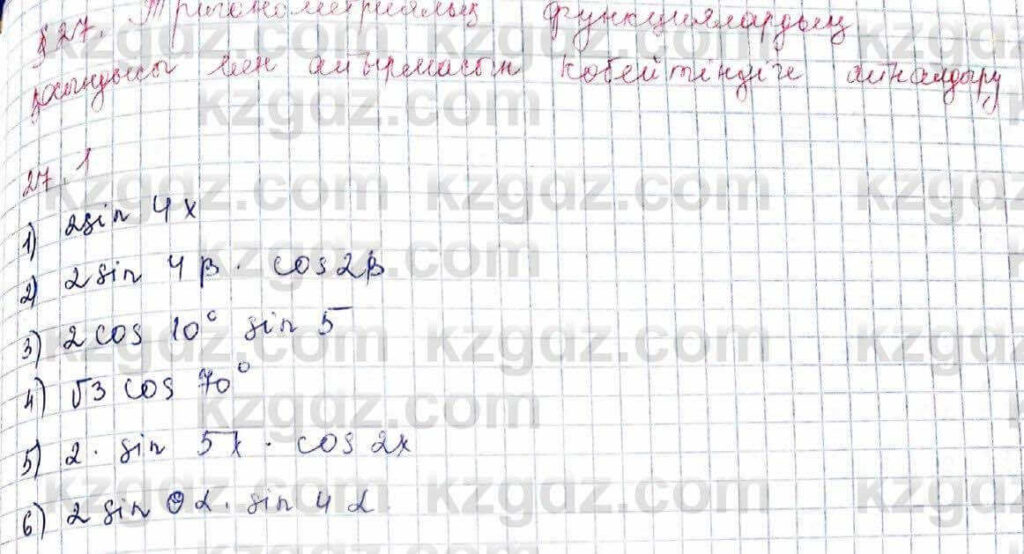 § 27. Тригонометриялық функциялардың
қосындысы мен айырмасын көбейтіндіге айналдыру
27.1
1) 2 sin 4x
2) 2 sin 4β · cos 2β
3) 2 cos 10° sin 5
4) √3 cos 70°
5) 2 · sin 5x · cos 2x
6) 2 sin θα · sin 4α
kzgdz.com